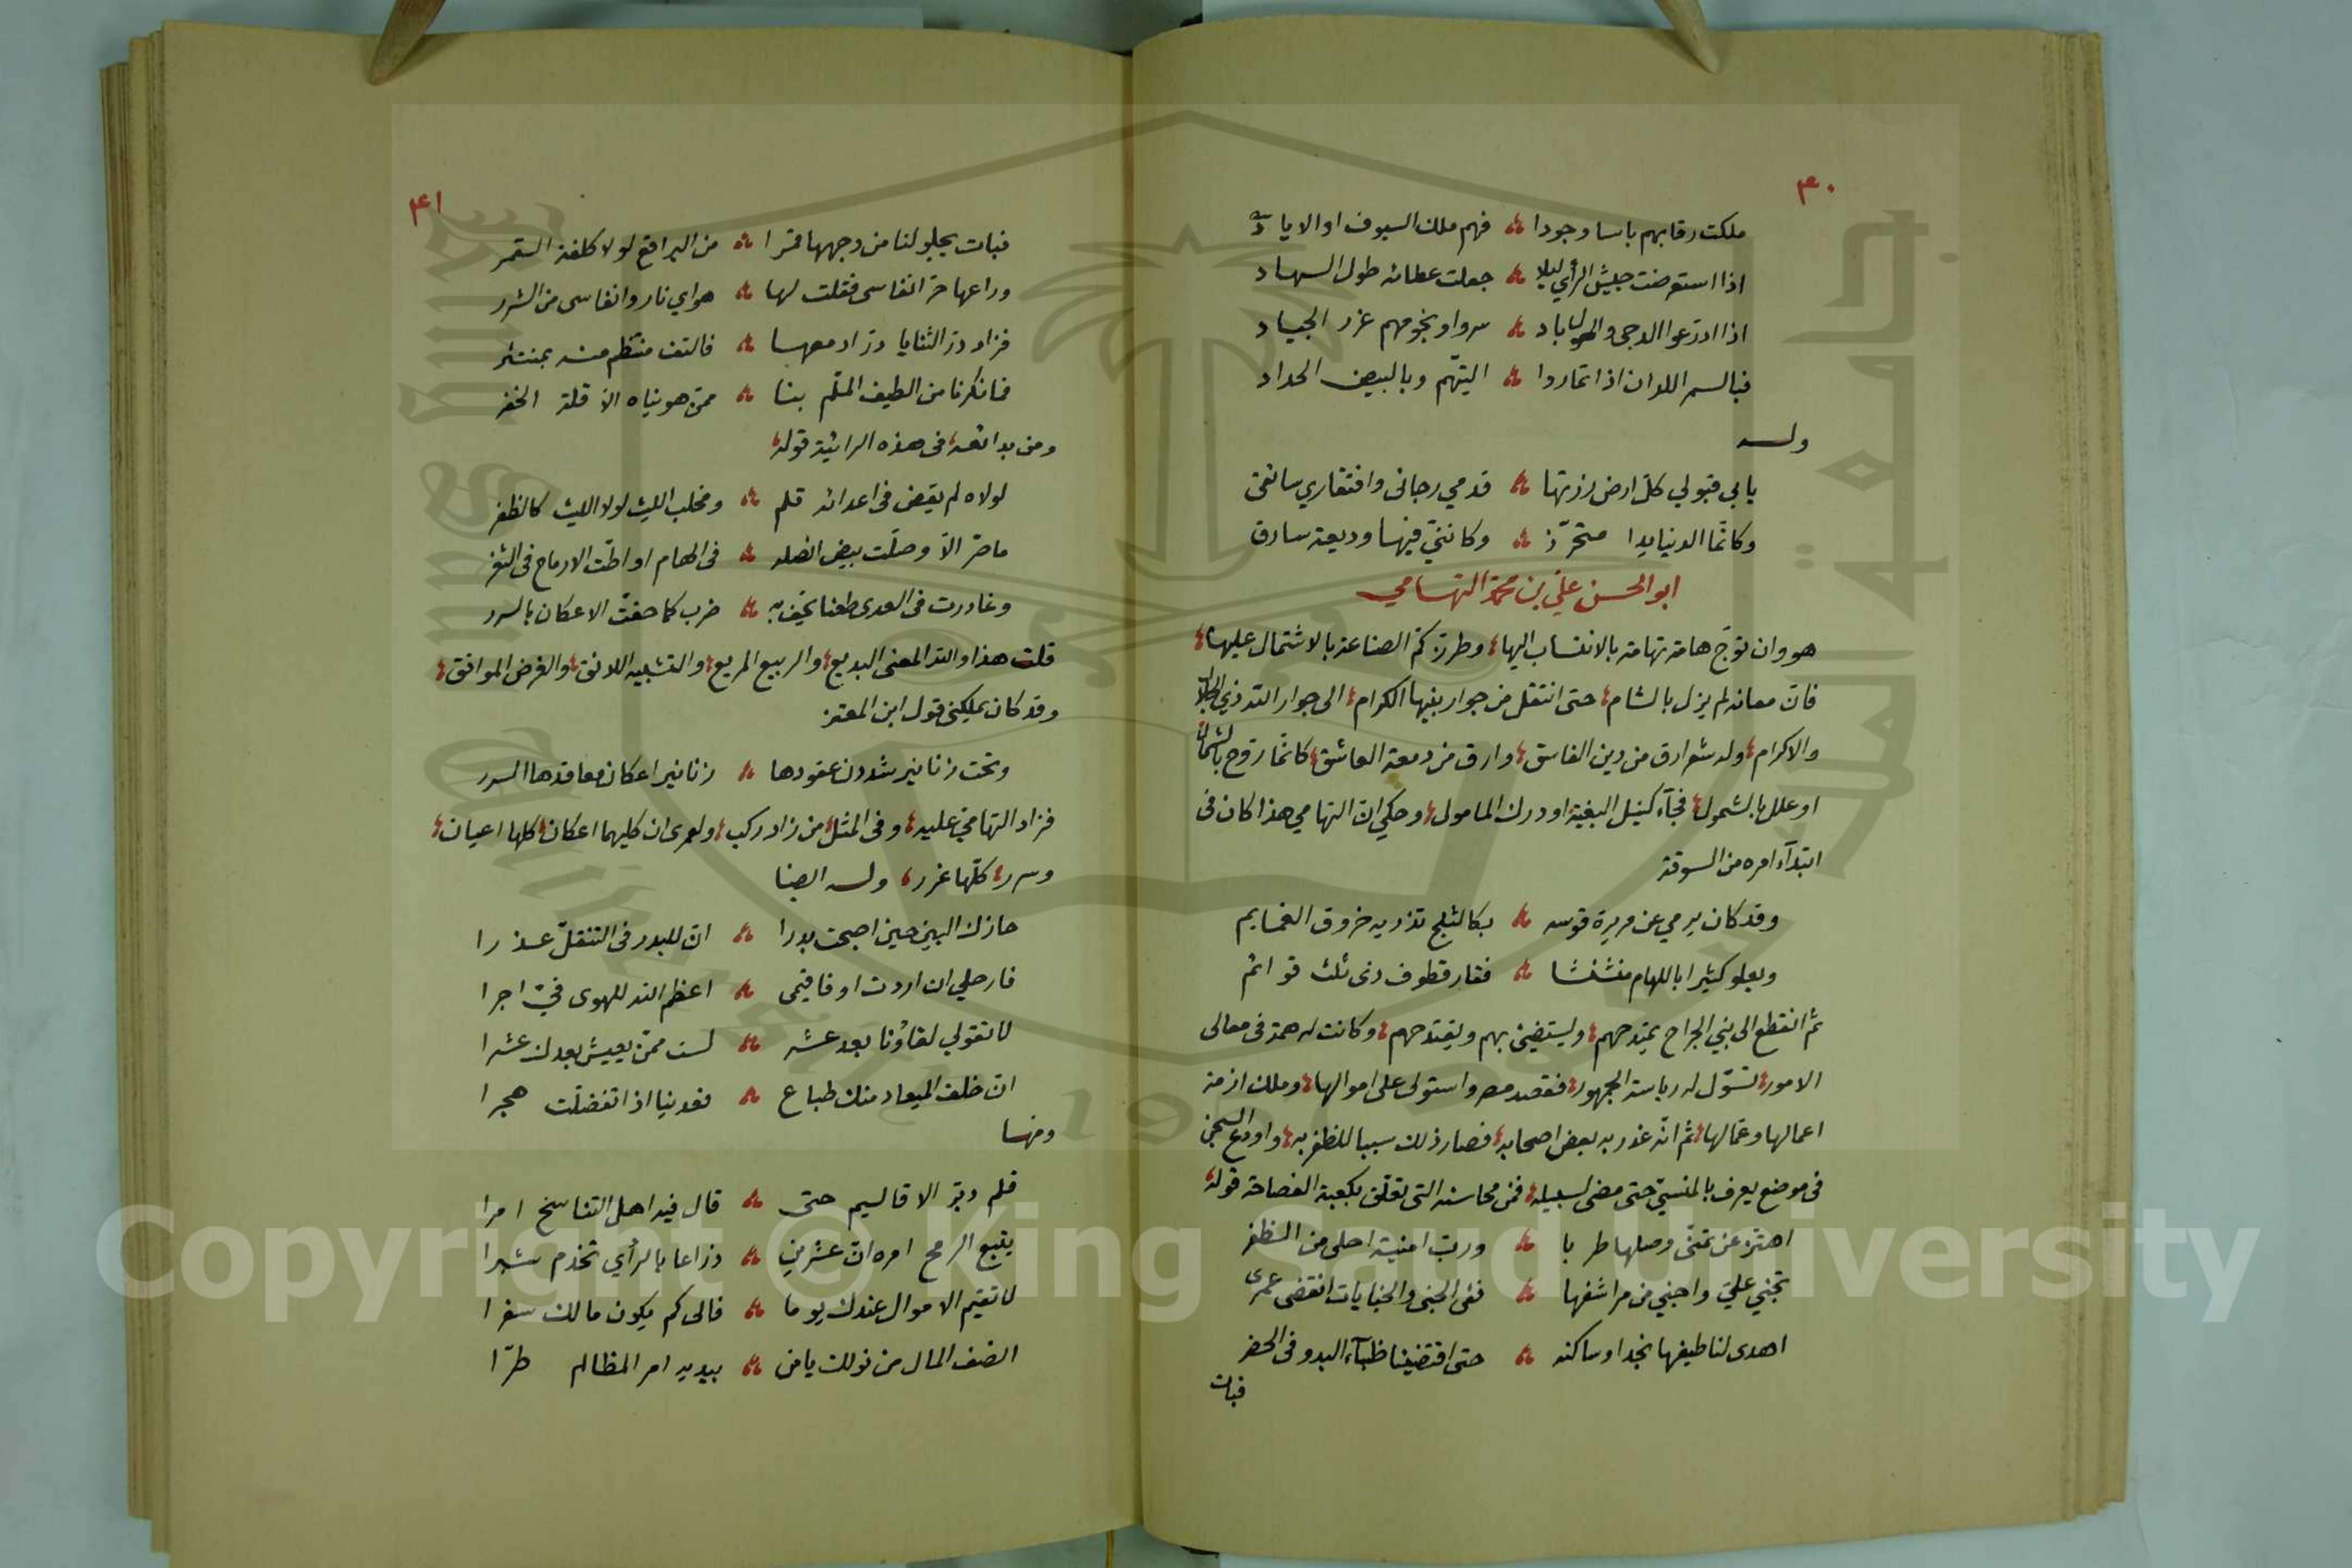 ٤٠
ملكت رقابهم باسا وجودا ؞ فهم ملك السيوف او الاياد
اذا استعرضت جيش الرأي ليلا ؞ جعلت عطائه طول السهاد
اذا ادرعوا الدجى والهول باد ؞ سروا ونجومهم غرر الجياد
فبالسمر اللدان اذا تماروا ؞ اليتهم وبالبيض الحداد
وله
يابي قبولي كل ارض زرتها ؞ قدمي رجائى وافتقاري سائقى
وكانما الدنيا يدا متحرز ؞ وكاننى فيها وديعة سارق
ابو الحسن علي بن محمد التهامي
هو وان توج هامة تهامة بالانتساب اليها، وطرز كم الصناعة بالاشتمال عليها،
فان معانه لم يزل بالشام، حتى انتقل من جوار بنيها الكرام، الى جوار الله ذي الجلال
والاكرام، وله شعر ادق من دين الفاسق، وارق من دمعة العاشق، كانما روح بالشمال
او علل بالشمول، فجآء كنيل البغية او درك المامول، وحكي ان التهامي هذا كان فى
ابتدآء امره من السوقة
وقد كان يرمي عن مريرة قوسه ؞ بكالثلج تذريه خروق الغمايم
ويعلو كثيرا باللهام منشنشا ؞ فقار قطوف ذى ثلث قوائم
ثم انقطع الى بني الجراح يمتدحهم، ويستضئ بهم ويقتدحهم، وكانت له همة فى معالى
الامور، تسوّل له رياسة الجمهور، فقصد مصر واستولى على اموالها، وملك ازمة
اعمالها وعمالها، ثم انه غدر به بعض اصحابه، فصار ذلك سببا للظفر به، واودع السجن
فى موضع يعرف بالمنسيّ حتى مضى لسبيله، فمن محاسنه التى تعلق بكعبة الفصاحة قوله
اهتز عن تمنى وصلها طربا ؞ ورب امنية احلى من الظفر
تجني علي واجني من مراشفها ؞ ففى الجنى والجنايات انقضى عمرى
اهدى لنا طيفها نجدا وساكنه ؞ حتى اقتضينا ظبآء البدو فى الحضر
فبات
٤١
فبات يجلو لنا من وجهها قمرا ؞ من البراقع لولا كلفة القمر
وراعها حر انفاسى فقلت لها ؞ هواي نار وانفاسى من الشرر
فزاد در الثنايا در ادمعها ؞ فالتف منتظم منه بمنتثر
فما نكرنا من الطيف الملم بنا ؞ ممن هويناه الا قلة الخفر
ومن بدائعه، فى هذه الرائية قوله،
لولاه لم يقض فى اعدائه قلم ؞ ومخلب الليث لولا الليث كالظفر
ماصر الا وصلت بيض انصله ؞ فى الهام او اطت الارماح فى الثغر
وغادرت فى العدى طعنا يحف به ؞ ضرب كما حفت الاعكان بالسرر
قلت هذا والله المعنى البديع، والربيع المريع، والتشبيه اللائق، والغرض الموافق،
وقد كان يملكنى قول ابن المعتز
وتحت زنانير شددن عقودها ؞ زنانير اعكان معاقدها السرر
فزاد التهامي عليه، وفى المثل، من زاد ركب، ولعمرى ان كليهما اعكان، كلها اعيان،
وسرر، كلها غرر، وله ايضا
حازك البين حين اصبحت بدرا ؞ ان للبدر فى التنقل عذرا
فارحلي ان اردت او فاقيمى ؞ اعظم الله للهوى فيّ اجرا
لا تقولي لقاؤنا بعد عشر ؞ لست ممن يعيش بعدك عشرا
ان خلف الميعاد منك طباع ؞ فعدينا اذا تفضلت هجرا
ومنها
قلم دبر الاقاليم حتى ؞ قال فيه اهل التناسخ امرا
يتبع الرمح امره ان عشرين ؞ ذراعا بالرأي تخدم شبرا
لا تقيم الاموال عندك يوما ؞ فالى كم يكون مالك سفرا
انصف المال من نوالك يا من ؞ بيديه امر المظالم طرّا
Copyright © King Saud University